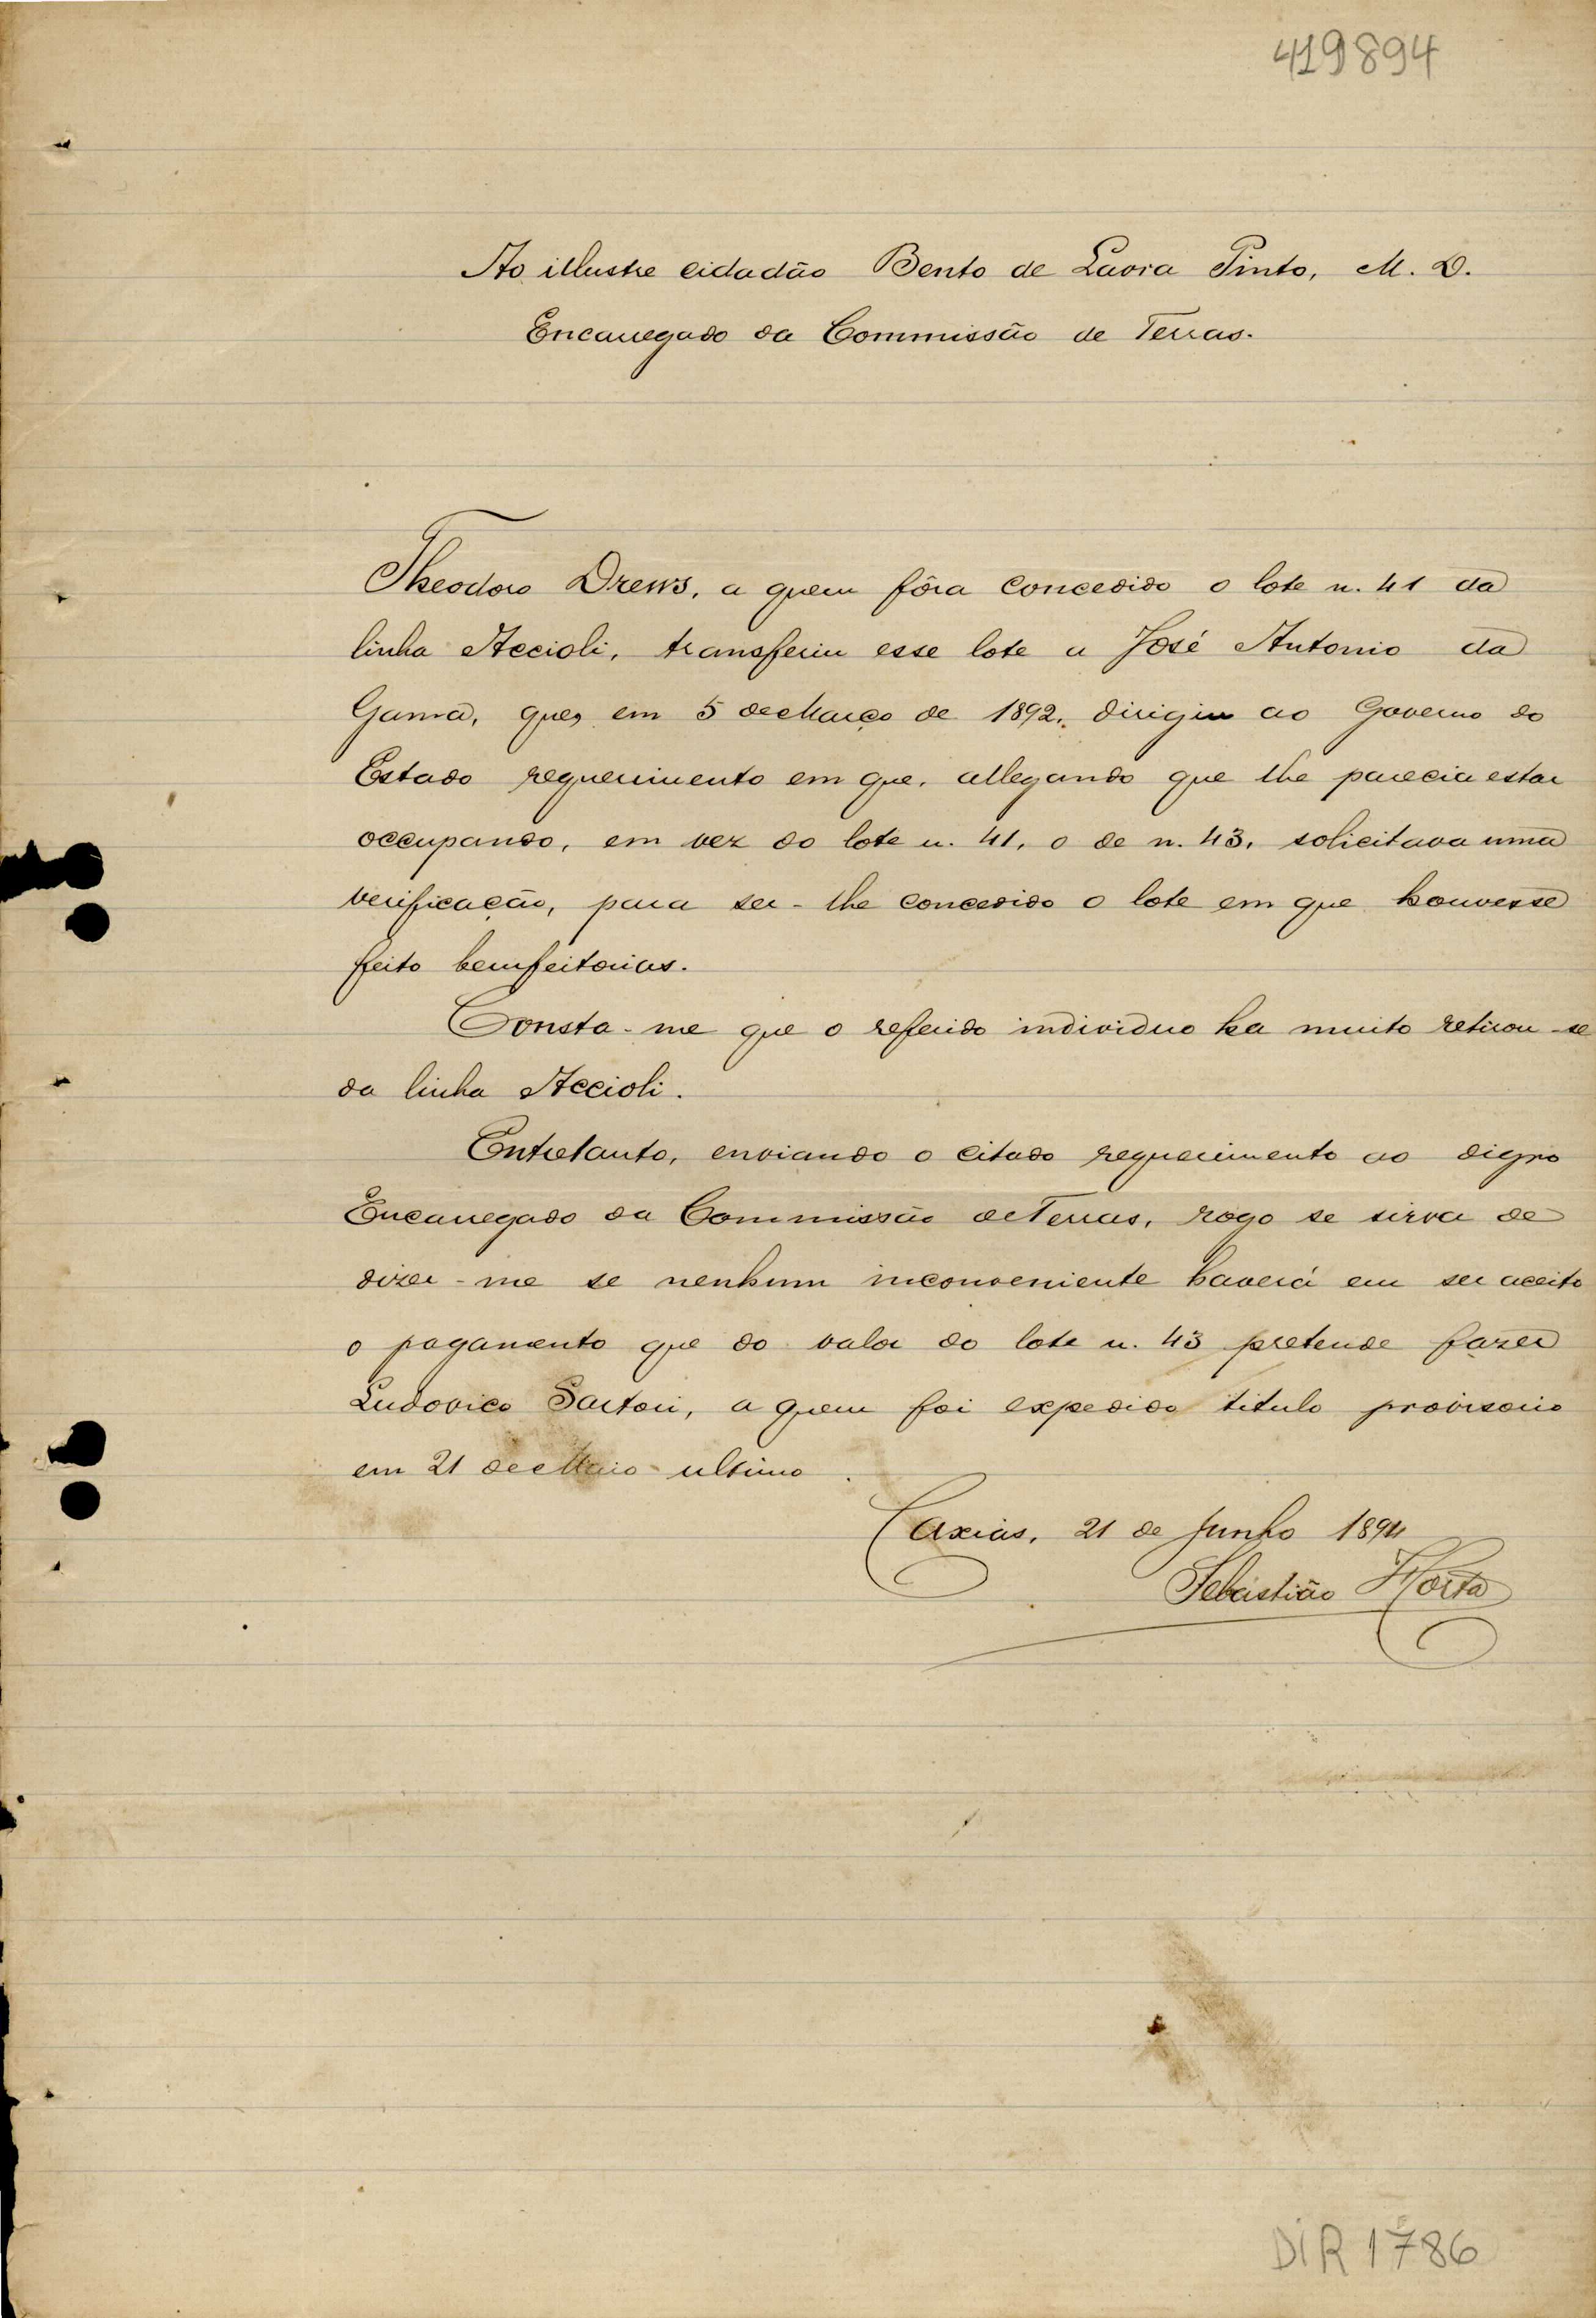 419894
Ao illustre cidadão Bento de Lavra Pinto, M. D.
Encarregado da Commissão de Terras.
Theodoro Drews, a quem fôra concedido o lote n. 41 da
linha Accioli, transferiu esse lote a José Antonio da
Gama, que, em 5 de Março de 1892, dirigiu ao Governo do
Estado requerimento em que, allegando que lhe parecia estar
occupando, em vez do lote n. 41, o de n. 43, solicitava uma
verificação, para ser-lhe concedido o lote em que houvesse
feito bemfeitorias.
Consta-me que o referido individuo ha muito retirou-se
da linha Accioli.
Entretanto, enviando o citado requerimento ao digno
Encarregado da Commissão de Terras, rogo se sirva de
dizer-me se nenhum inconveniente haverá em ser aceito
o pagamento que do valor do lote n. 43 pretende fazer
Ludovico Sartori, a quem foi expedido titulo provisorio
em 21 de Maio ultimo.
Caxias, 21 de Junho 1894
Sebastião Horta
DIR 1786